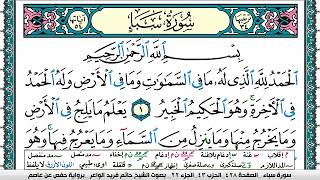 سُورَةُ سَبَإٍ
بِسْمِ اللَّهِ الرَّحْمَٰنِ الرَّحِيمِ
الْحَمْدُ لِلَّهِ الَّذِي لَهُ مَا فِي السَّمَاوَاتِ وَمَا فِي الْأَرْضِ وَلَهُ الْحَمْدُ
فِي الْآخِرَةِ وَهُوَ الْحَكِيمُ الْخَبِيرُ ١ يَعْلَمُ مَا يَلِجُ فِي الْأَرْضِ
وَمَا يَخْرُجُ مِنْهَا وَمَا يَنزِلُ مِنَ السَّمَاءِ وَمَا يَعْرُجُ فِيهَا وَهُوَ
سورة سباء الصفحة ٤٢٨ الحزب ٤٣ الجزء ٢٢ بصوت الشيخ حاتم فريد الواعر برواية حفص عن عاصم